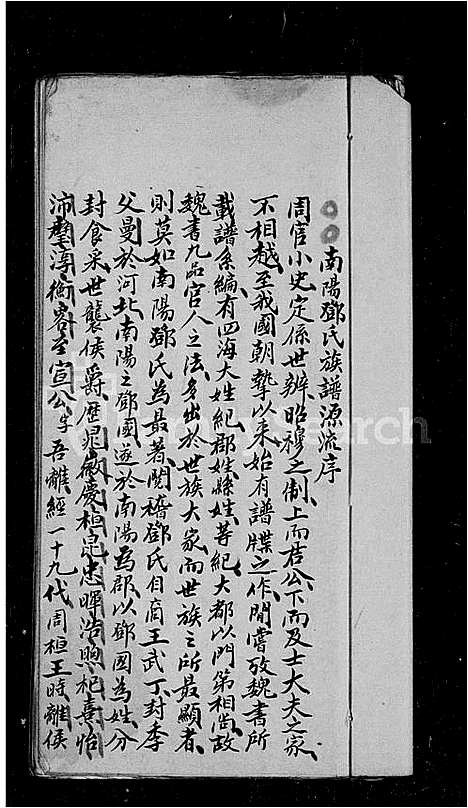 南陽鄧氏族譜源流序
周官小史定係世辨昭穆之制上而君公下而及士大夫之家
不相越至我國朝摯以來始有譜牒之作閒嘗攷魏書所
載譜系編有四海大姓紀郡姓縣姓等紀大都以門第相尚故
魏書九品官人之法多出於世族大家而世族之所最顯者
則莫如南陽鄧氏為最著閱稽鄧氏自商王武丁封季
父曼於河北南陽之鄧國遂於南陽為郡以鄧國為姓分
封食采世襲侯爵歷晁徽慶桓昆忠暉浩煦杞熹怡
沛壐淳衡畧至宣公字吾離經一十九代周桓王時離侯